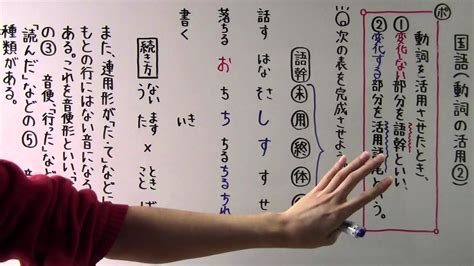 国語(動詞の活用②)
ポ
動詞を活用させたとき、
①変化しない部分を語幹といい、
②変化する部分を活用語尾という。
次の表を完成させよう
語幹 未 用 終 体
話す はな さ そ し す す せ
落ちる お ち ち ちる ちる ちれ
書く き い
続き方 ない う ます た × とき ば
また、連用形が「た・て」などに
もとの行にはない音になる
ある。これを音便形といい、
の③ 音便、「行った」など
「読んだ」などの⑤
種類がある。